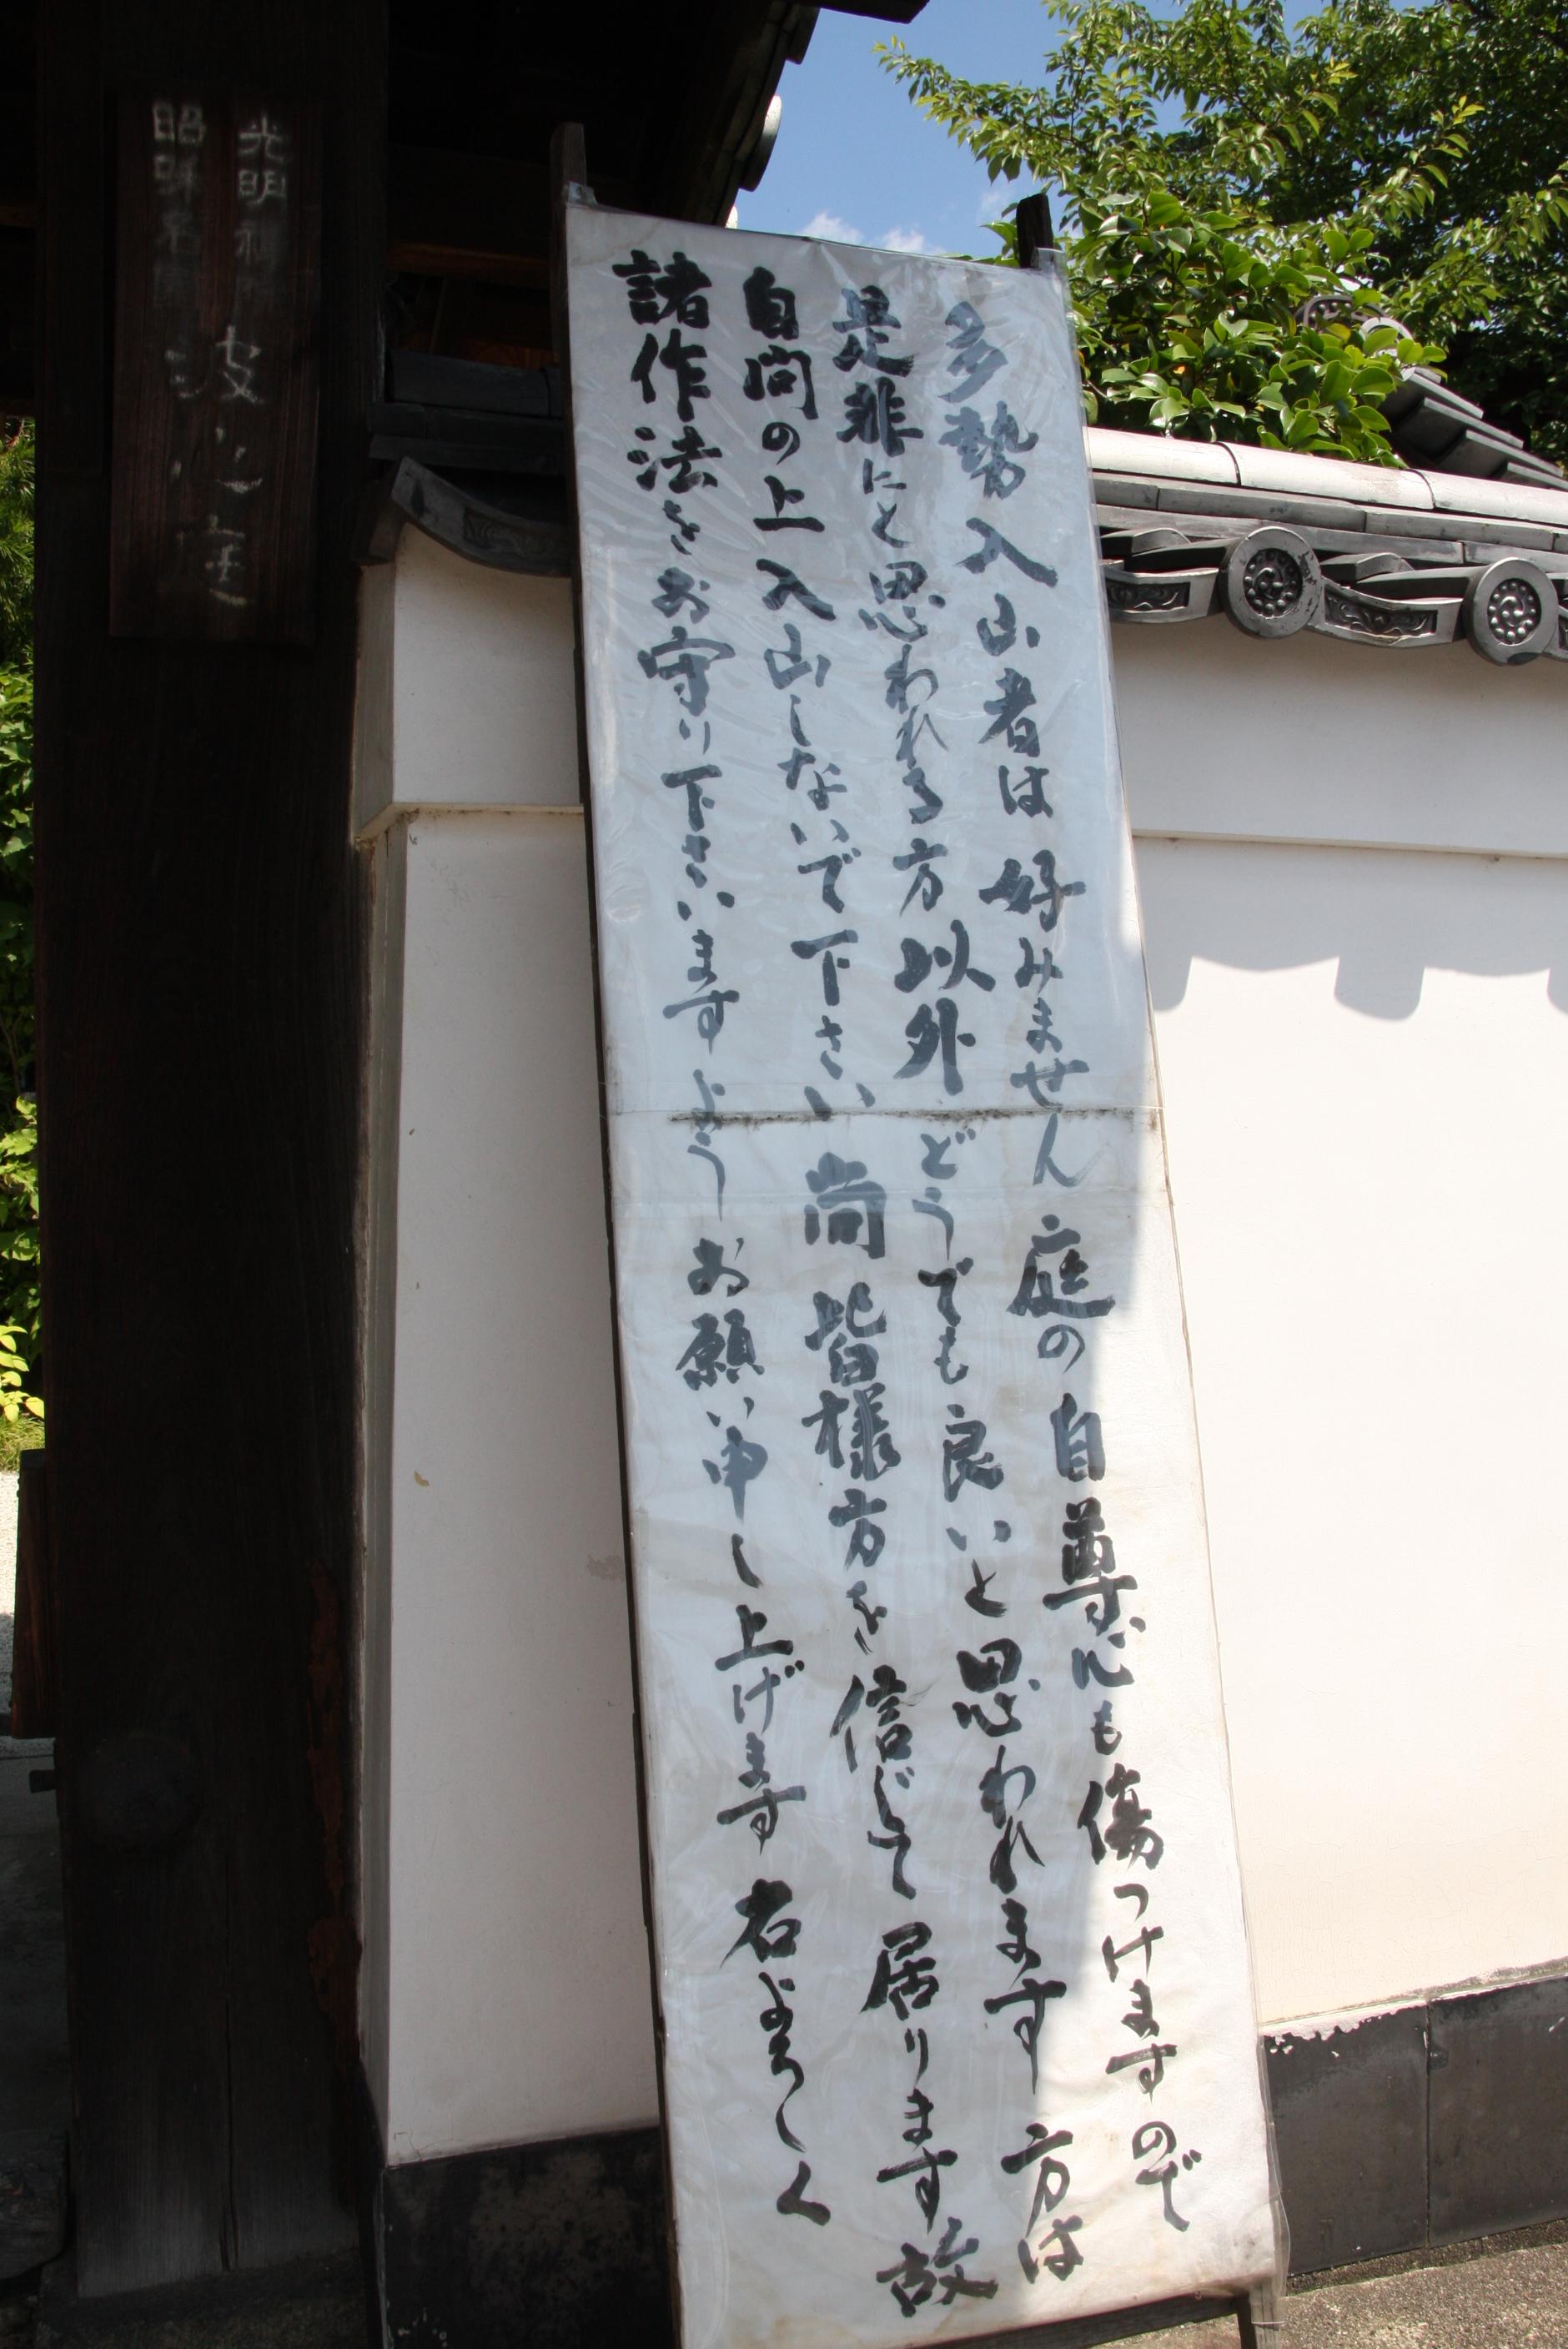 多勢入山者は好みません 庭の自尊心も傷つけますので
是非にと思われる方以外どうでも良いと思われます方は
自問の上入山しないで下さい 尚皆様方を信じて居ります故
諸作法をお守り下さいますようお願い申し上げます 右よろしく
光明
波心庭